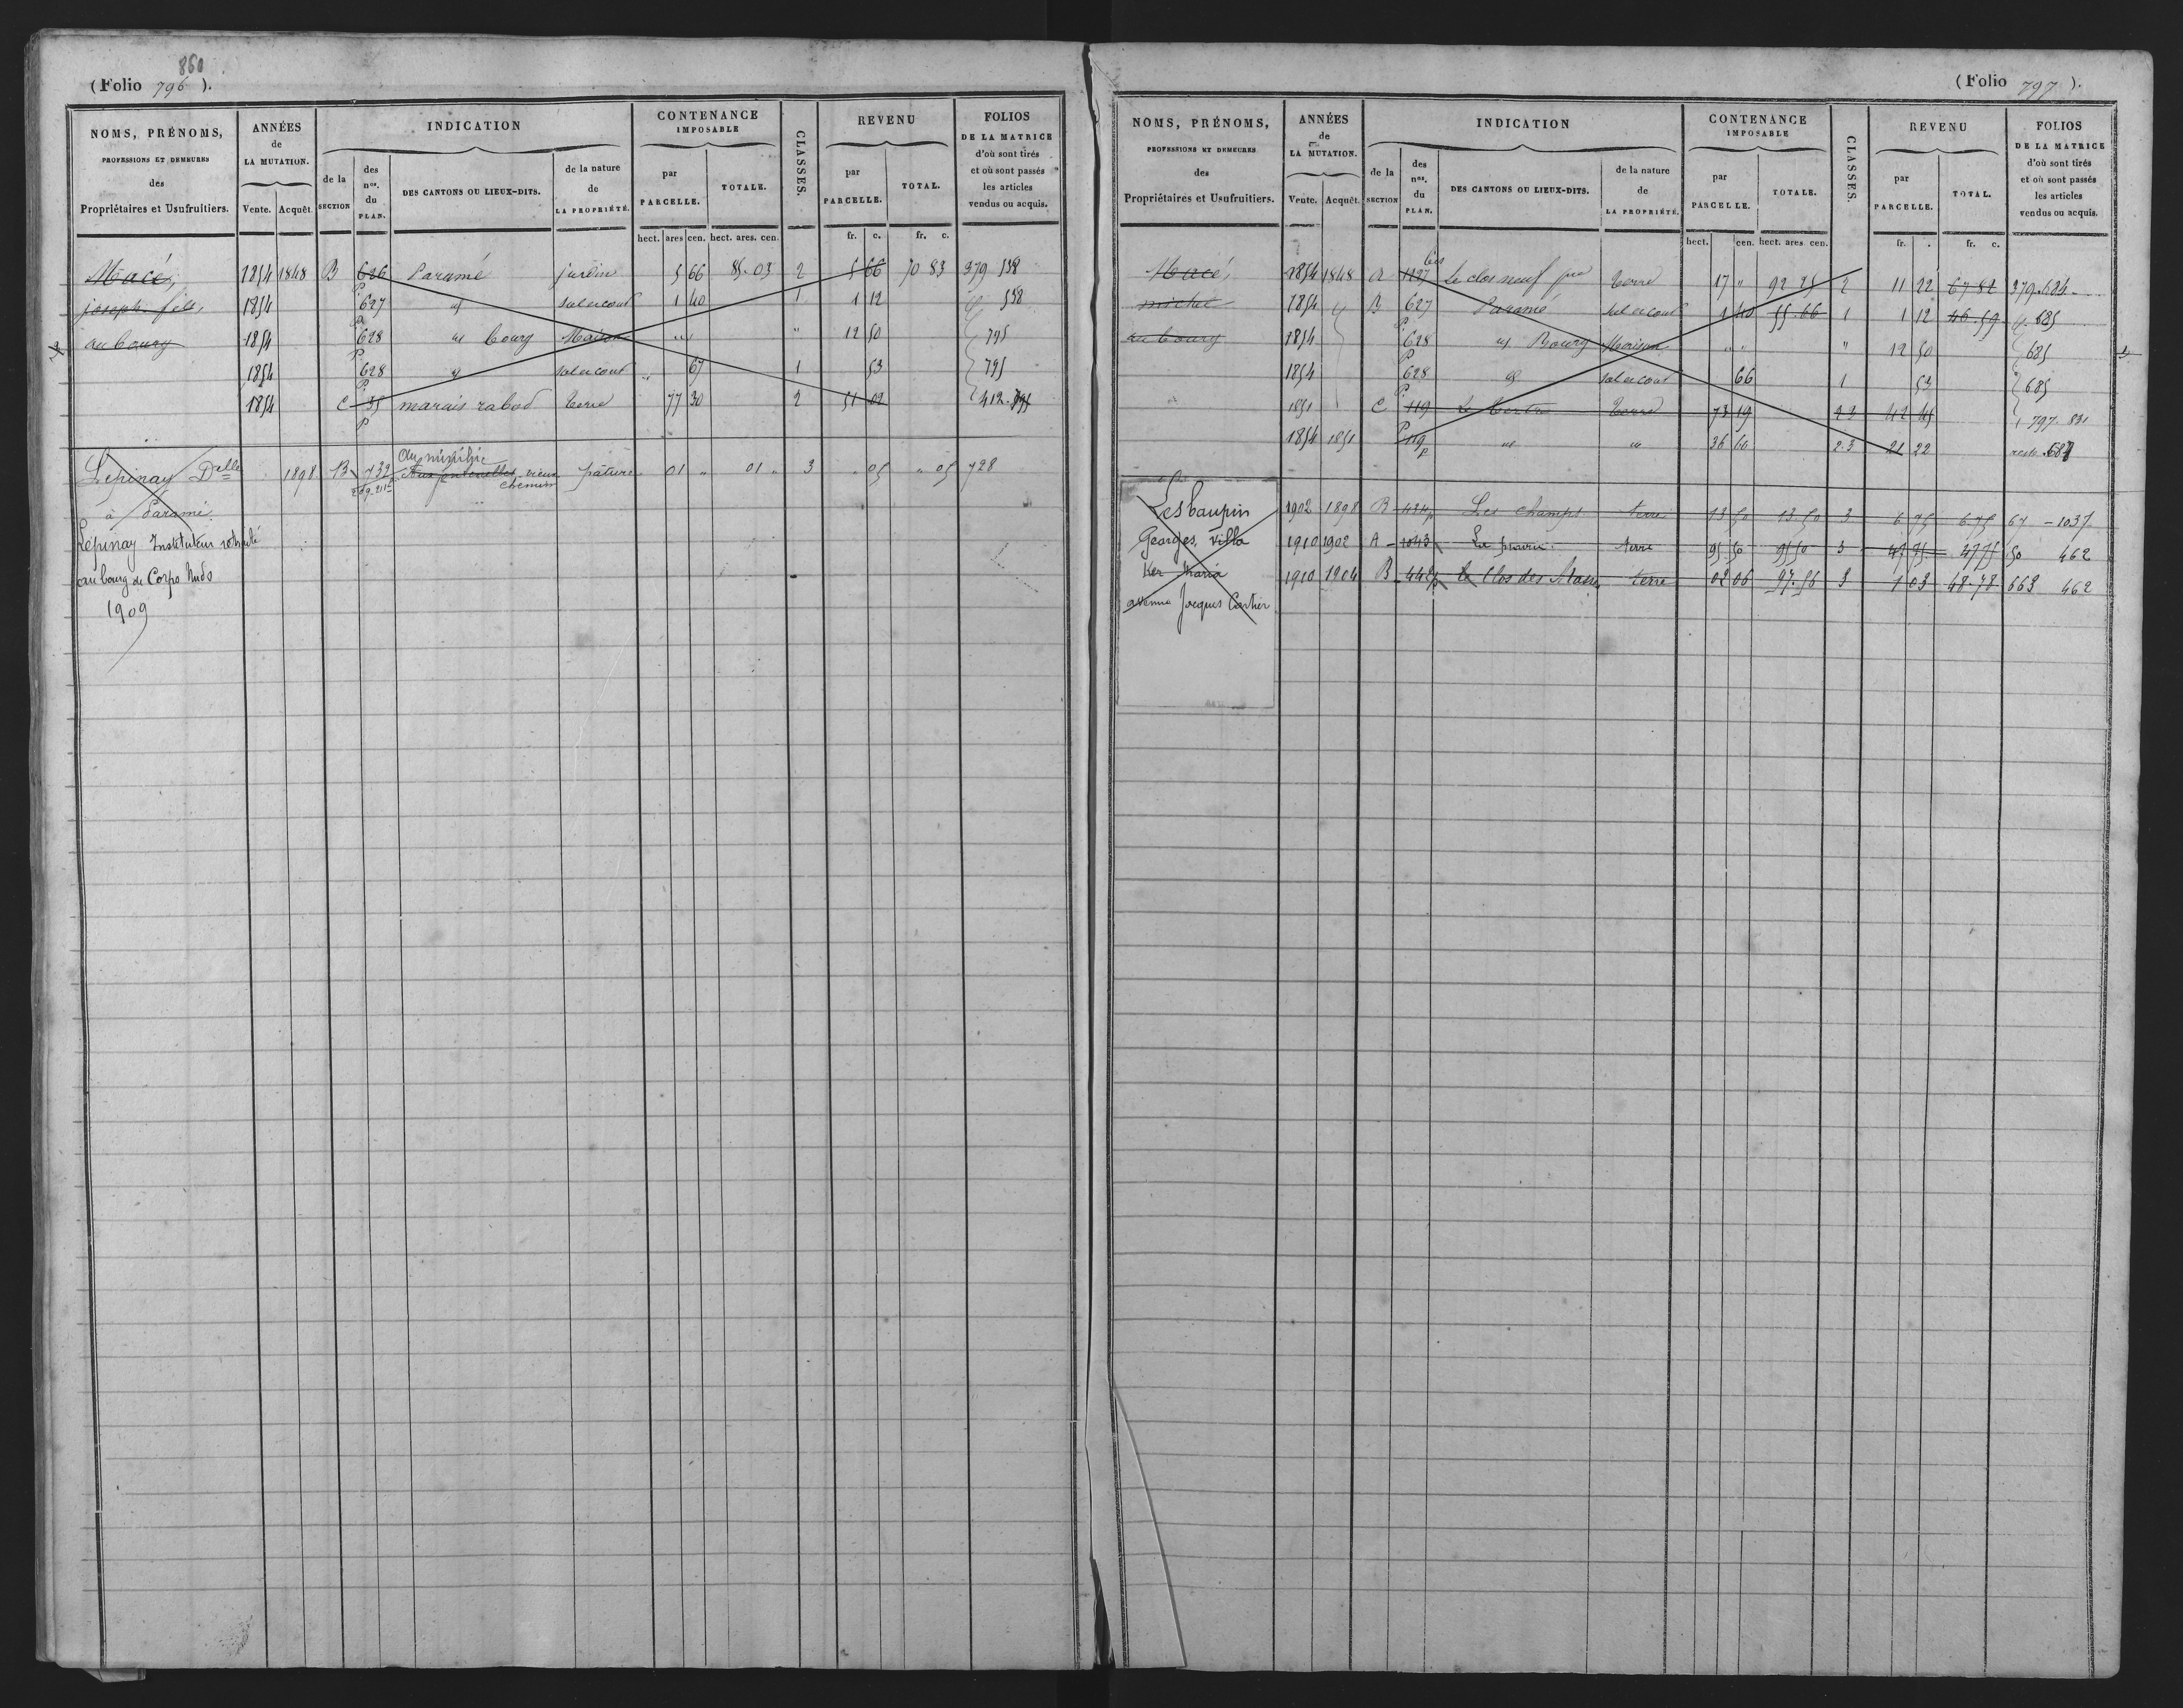 860
(Folio 796 ).
NOMS, PRÉNOMS,
PROFESSIONS ET DEMEURES
des
Propriétaires et Usufruitiers.
ANNÉES
de
LA MUTATION.
Vente. Acquêt.
INDICATION
de la
SECTION
des
nos.
du
PLAN.
DES CANTONS OU LIEUX-DITS.
de la nature
de
LA PROPRIÉTÉ.
CONTENANCE
IMPOSABLE
par
PARCELLE.
TOTALE.
hect. ares cen. hect. ares. cen.
CLASSES.
REVENU
par
PARCELLE.
TOTAL.
fr. c. fr. c.
FOLIOS
DE LA MATRICE
d'où sont tirés
et où sont passés
les articles
vendus ou acquis.
Macé, 1854 1848 B 626 Paramé jardin 5 66 85.03 2 5 66 70 83 379 538
joseph fils, 1854 P. 627 id sol et cour 1 40 1 1 12 id 538
au bourg 1854 P. 628 id bourg Maison " " " 12 50 795
1854 P. 628 id sol et cour " 67 1 53 795
1854 C P. 35 marais rabod terre 77 30 2 51 02 412. 795
P
Lepinay Delle 1898 B 732 Aux fontenelles vieux chemin pâture 01 " 01 " 3 " 05 " 05 728
à Paramé
Lepinay Instituteur retraité
au bourg de Corps Nuds
1909
(Folio 797 ).
NOMS, PRÉNOMS,
PROFESSIONS ET DEMEURES
des
Propriétaires et Usufruitiers.
ANNÉES
de
LA MUTATION.
Vente. Acquêt.
INDICATION
de la
SECTION
des
nos.
du
PLAN.
DES CANTONS OU LIEUX-DITS.
de la nature
de
LA PROPRIÉTÉ.
CONTENANCE
IMPOSABLE
par
PARCELLE.
TOTALE.
hect. cen. hect. ares. cen.
CLASSES.
REVENU
par
PARCELLE.
TOTAL.
fr. . fr. c.
FOLIOS
DE LA MATRICE
d'où sont tirés
et où sont passés
les articles
vendus ou acquis.
bis
Macé, 1854 1848 A 1227 Le clos neuf terre 17 " 92 25 2 11 22 67 82 379. 684
michel 1854 id B 627 Paramé sol et cour 1 40 55.66 1 1 12 46.59 id. 685
au bourg 1854 P. 628 id Bourg Maison " " " 12 50 685
1854 P. 628 id sol et cour 66 1 53 685
1851 C P. 119 Le Tertre terre 73 19 2 3 42 45 797 831
1854 1851 P. 119 p id id 36 60 2.3 21 22 reste 687
Lesbaupin 1902 1898 B 434p Les champs terre 13 50 13.50 3 6 75 6.75 67 - 1037
Georges, villa 1910 1902 A 1043 La prairie terre 95 50 95 50 3 47 75 47 75 50 462
Ker Maria 1910 1904 B 442p Le Clos des Mares terre 02 06 97.56 3 1 03 48.78 663 462
avenue Jacques Cartier